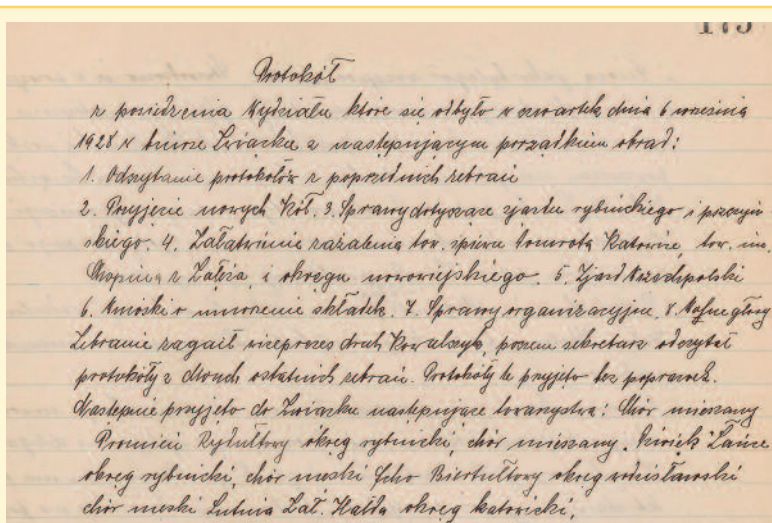 175
Protokół
z posiedzenia Wydziału które się odbyło w czwartek dnia 6 września
1928 w biurze Związku z następującym porządkiem obrad:
1. Odczytanie protokołów z poprzednich zebrań
2. Przyjęcie nowych Kół. 3. Sprawy dotyczące zjazdu rybnickiego i pszczyń
skiego. 4. Załatwienie zażalenia tow. śpiewu Katowice, tow. im.
Chopina z Załęża, i okręgu nowowiejskiego. 5. Zjazd Wszechpolski
6. Wnioski o umorzenie składek. 7. Sprawy organizacyjne. 8. Wolne głosy
Zebranie zagaił wiceprezes druh Kowalczyk, poczem sekretarz odczytał
protokóły z dwuch ostatnich zebrań. Protokóły te przyjęto bez poprawek.
Następnie przyjęto do Związku następujące towarzystwa: Chór mieszany
Promień Rydułtowy okręg rybnicki, chór mieszany
okręg rybnicki, chór męski Echo Biertułtowy okręg wodzisławski
chór męski Lutnia Zał. Hałda okręg katowicki,